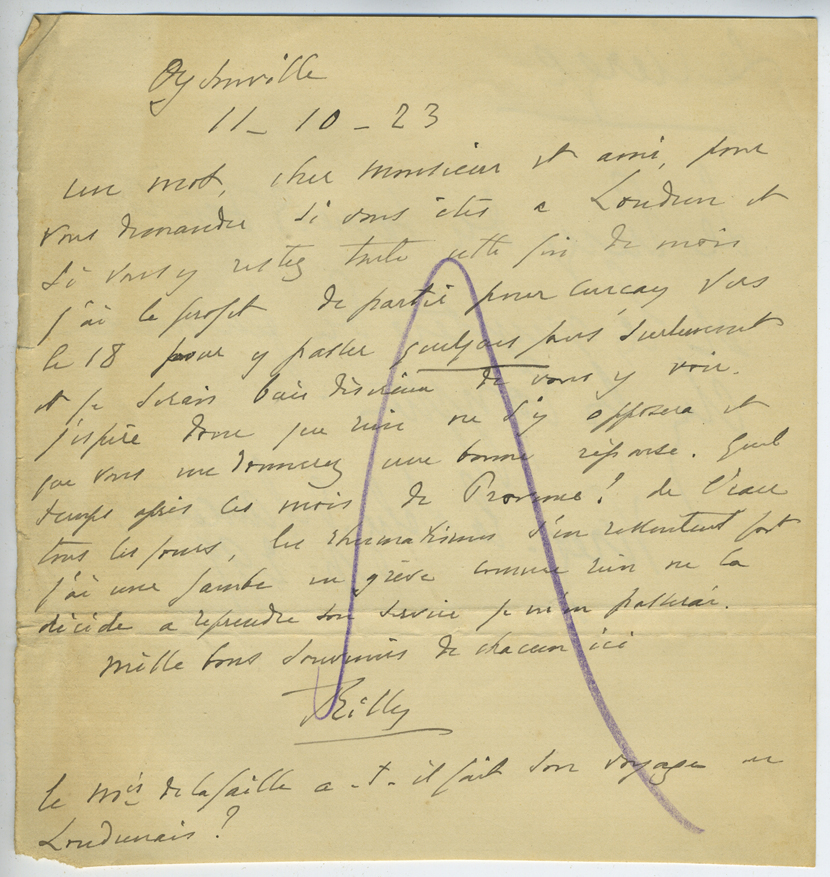 Oysonville
11 - 10 - 23
un mot, cher monsieur et ami, pour
vous demander si vous êtes a Loudun et
si vous y restez toute cette fin de mois
j'ai le projet de partir pour Curçay vers
le 18 pour y passer quelques jours seulement
et je serais bien désireux de vous y voir.
j'espère donc que rien ne s'y opposera et
que vous me donnerez une bonne réponse. Quel
temps après les mois de Provence! de l'eau
tous les jours, les rhumatismes s'en ressentent fort
j'ai une jambe en grève comme rien ne la
décide a reprendre son service je m'en passerai.
mille bons souvenirs de chacun ici
Rilly
le mis de la faille a-t-il fait son voyage en
Loudunais?